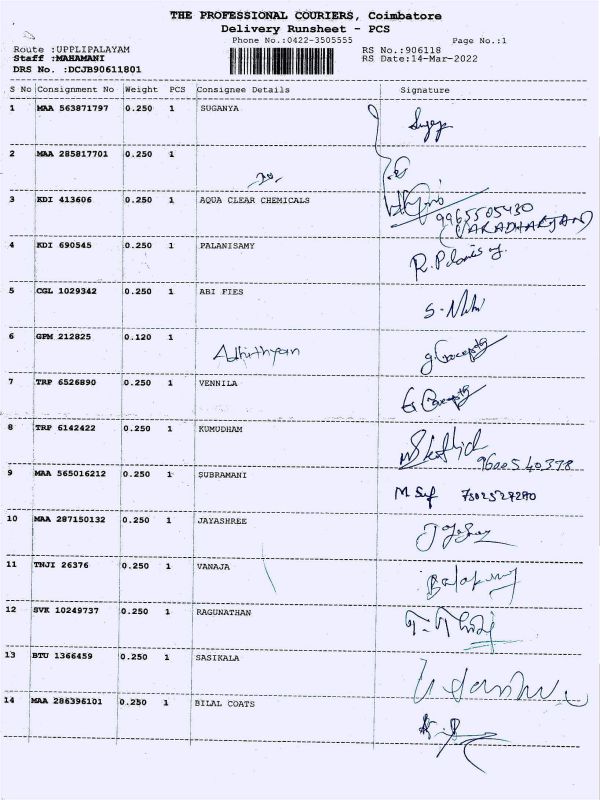 THE PROFESSIONAL COURIERS, Coimbatore
Delivery Runsheet - PCS
Phone No.:0422-3505555 Page No.:1
Route :UPPLIPALAYAM RS No.:906118
Staff :MAHAMANI RS Date:14-Mar-2022
DRS No. :DCJB90611801
S No Consignment No Weight PCS Consignee Details Signature
1 MAA 563871797 0.250 1 SUGANYA
2 MAA 285817701 0.250 1
3 KDI 413606 0.250 1 AQUA CLEAR CHEMICALS 9965505430
(VARADHARAJAN)
4 KDI 690545 0.250 1 PALANISAMY R. Palanisamy
5 CGL 1029342 0.250 1 ABI FIES
6 GPM 212825 0.120 1 Adhithyan
7 TRP 6526890 0.250 1 VENNILA
8 TRP 6142422 0.250 1 KUMUDHAM
9600540378
9 MAA 565016212 0.250 1 SUBRAMANI 7502527280
10 MAA 287150132 0.250 1 JAYASHREE
11 TNJI 26376 0.250 1 VANAJA
12 SVK 10249737 0.250 1 RAGUNATHAN
13 BTU 1366459 0.250 1 SASIKALA
14 MAA 286396101 0.250 1 BILAL COATS